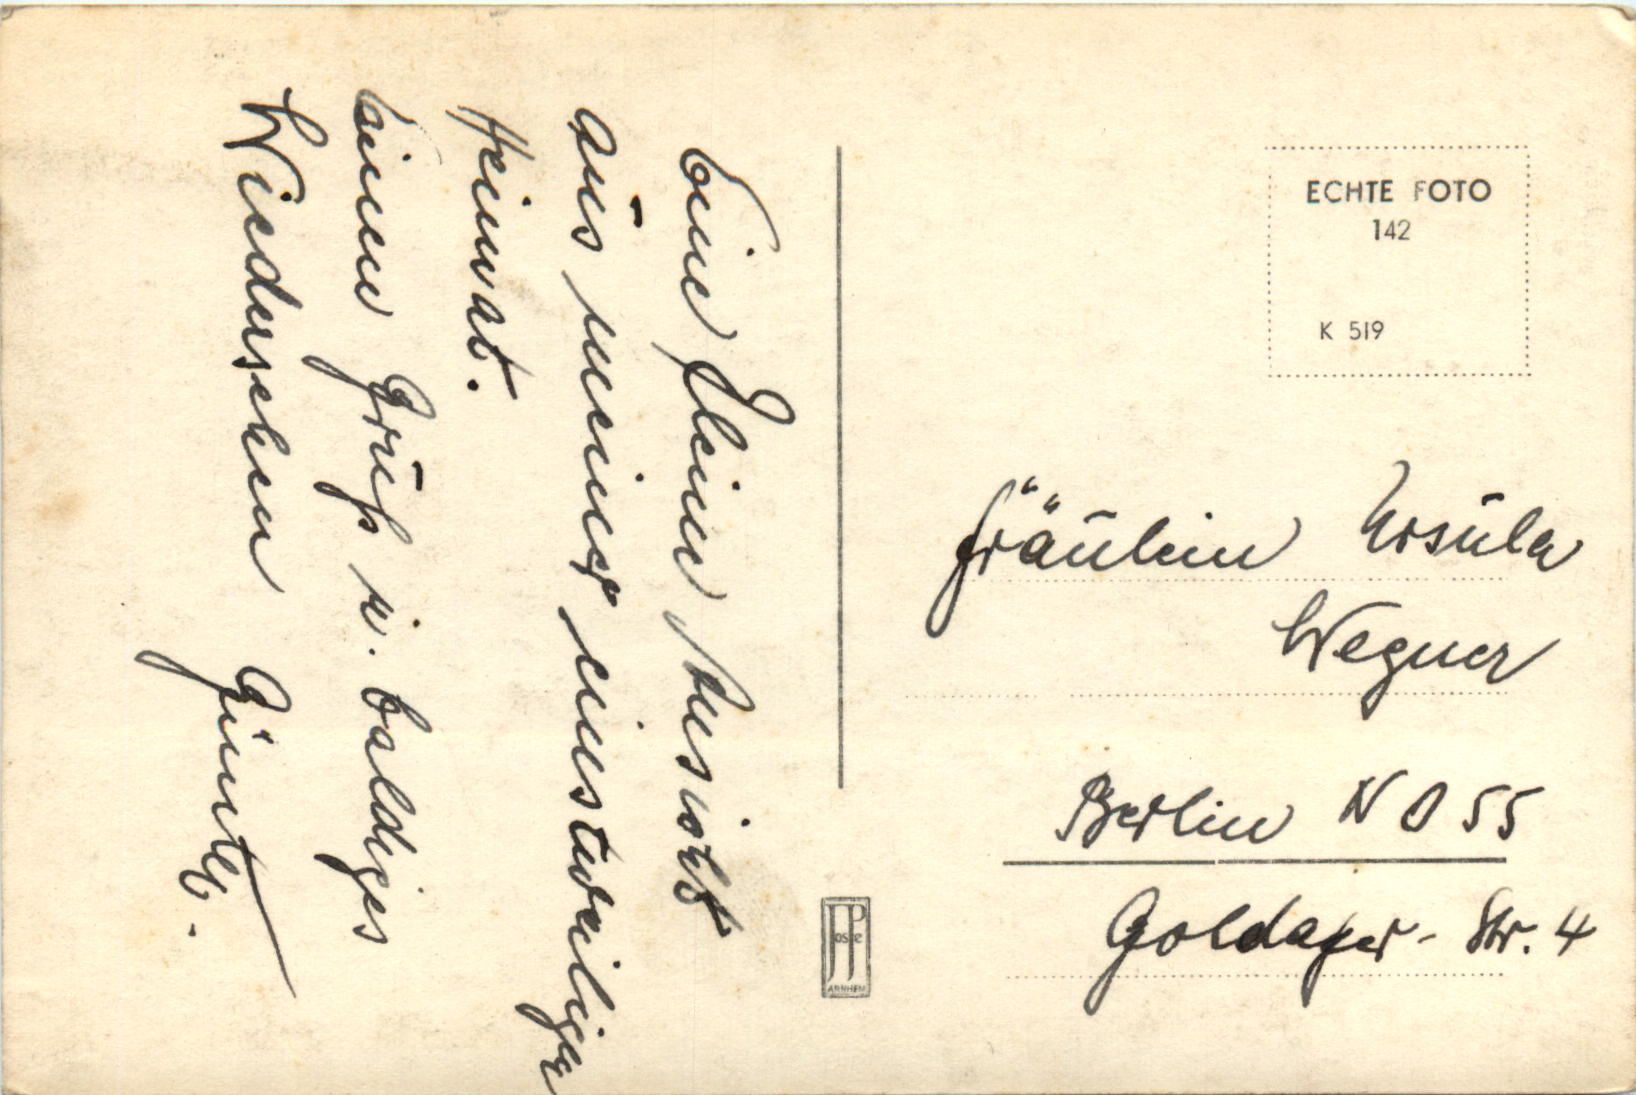 Eine kleine Ansicht
aus meiner einstweiligen
Heimat.
Einen Gruß u. baldiges
Wiedersehen Günter.
ECHTE FOTO
142
K 519
Fräulein Ursula
Wegner
Berlin NO 55
Goldaper-Str. 4
JosPé
ARNHEM